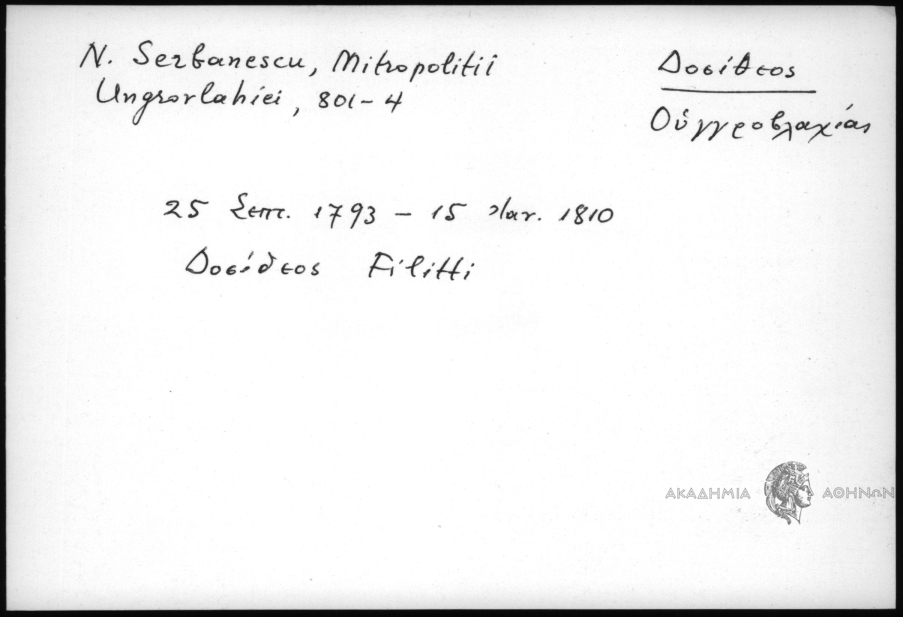 N. Serbanescu, Mitropolitii
Ungrovlahiei, 801-4
Δοσίθεος
Οὐγγροβλαχίας
25 Σεπτ. 1793 - 15 Ἰαν. 1810
Δοσίθεος Filitti
ΑΚΑΔΗΜΙΑ ΑΘΗΝΩΝ